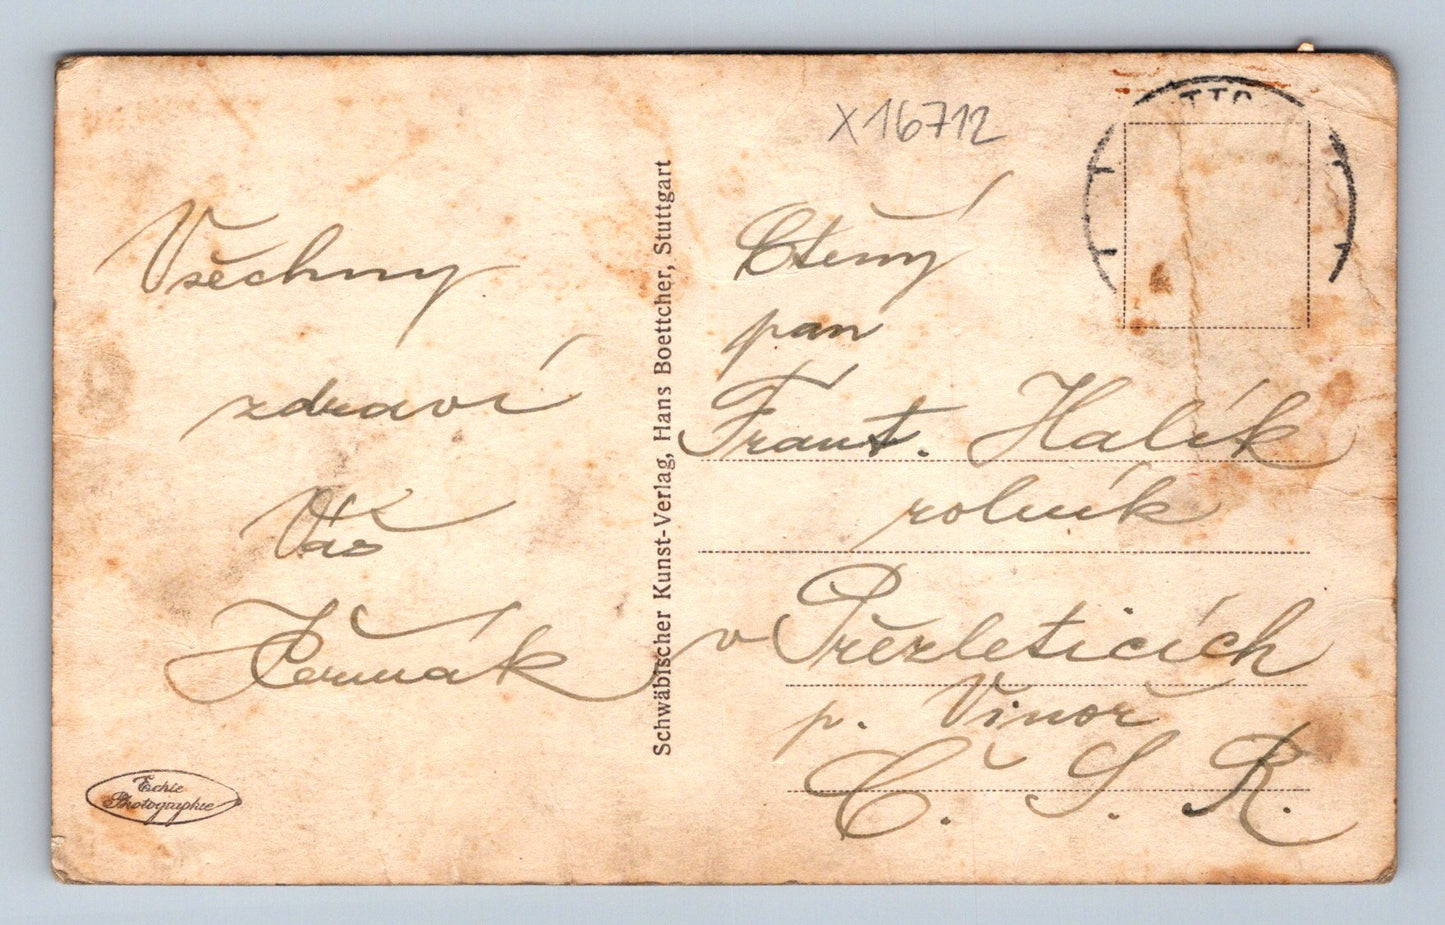 X16712
Všechny
zdraví
Váš
Čermák
Echte
Photographie
Schwäbischer Kunst-Verlag, Hans Boettcher, Stuttgart
Ctěný
pan
Frant. Halík
rolník
v Přezleticích
p. Vinoř
Č. S. R.